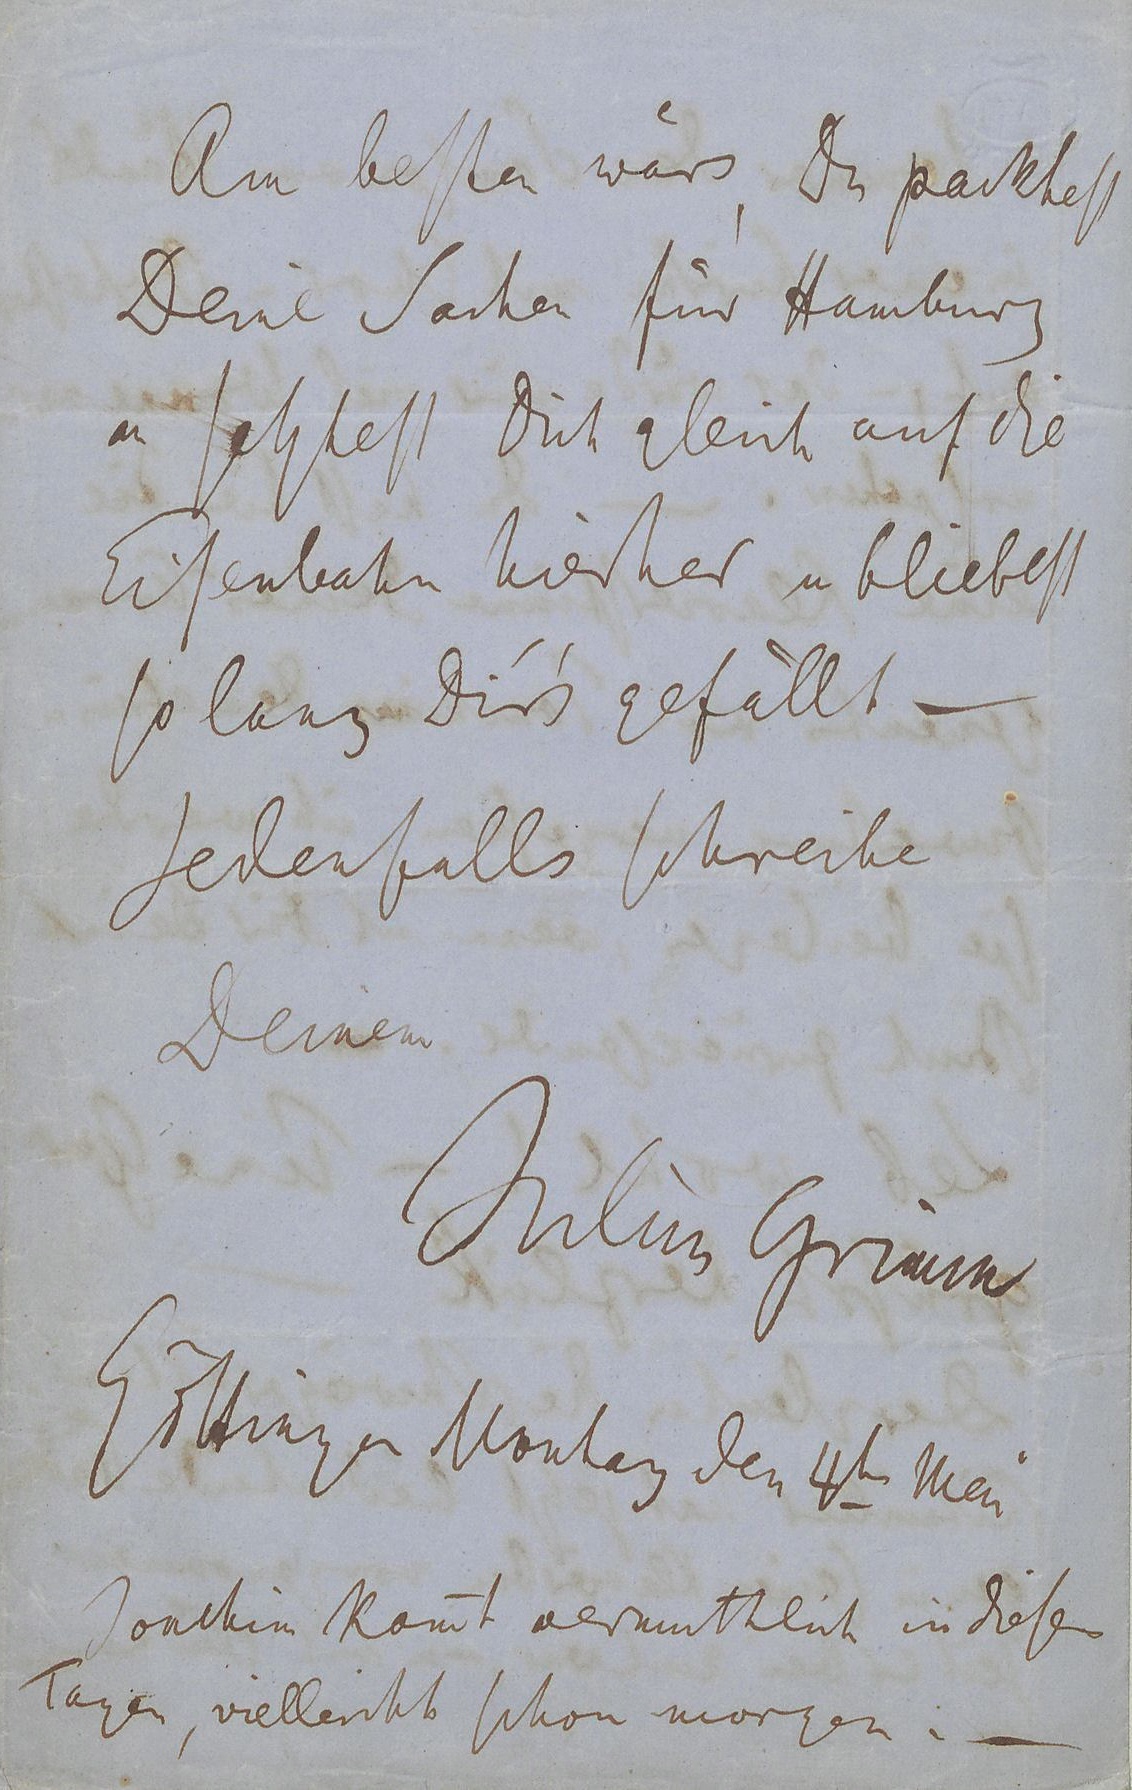 Am besten wärs, Du packtest
Deine Sachen für Hamburg
u setztest Dich gleich auf die
Eisenbahn hierher u bliebest
so lang Dir's gefällt —
Jedenfalls schreibe
Deinem
Julius Grimm
Göttingen Montag den 4ten Mai
Joachim kom̄t vermuthlich in diesen
Tagen, vielleicht schon morgen. —